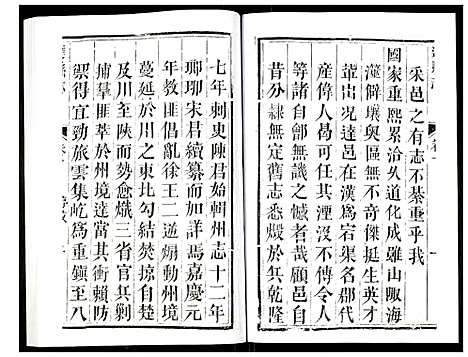 采邑之有志不綦重乎我
國家重熙累洽久道化成雖山陬海
澨僻壤與區無不奇傑挺生英才
輩出況達邑在漢爲宕渠名郡代
產偉人曷可任其久而不傳令人
等諸自鄶無譏之憾者哉顧邑自
昔分隸無定舊志悉燬於兵乾隆
七年刺史陳君始輯州志十二年
瑯瑘宋君續纂而加詳焉嘉慶元
年教匪倡亂徐王二逆煽動州境
蔓延於川之東北勾結焚掠自楚
及川至陝而勢愈熾三省官兵剿
捕羣萃於州境達當其衝賴防
禦得宜勁旅雲集屹爲重鎮至八